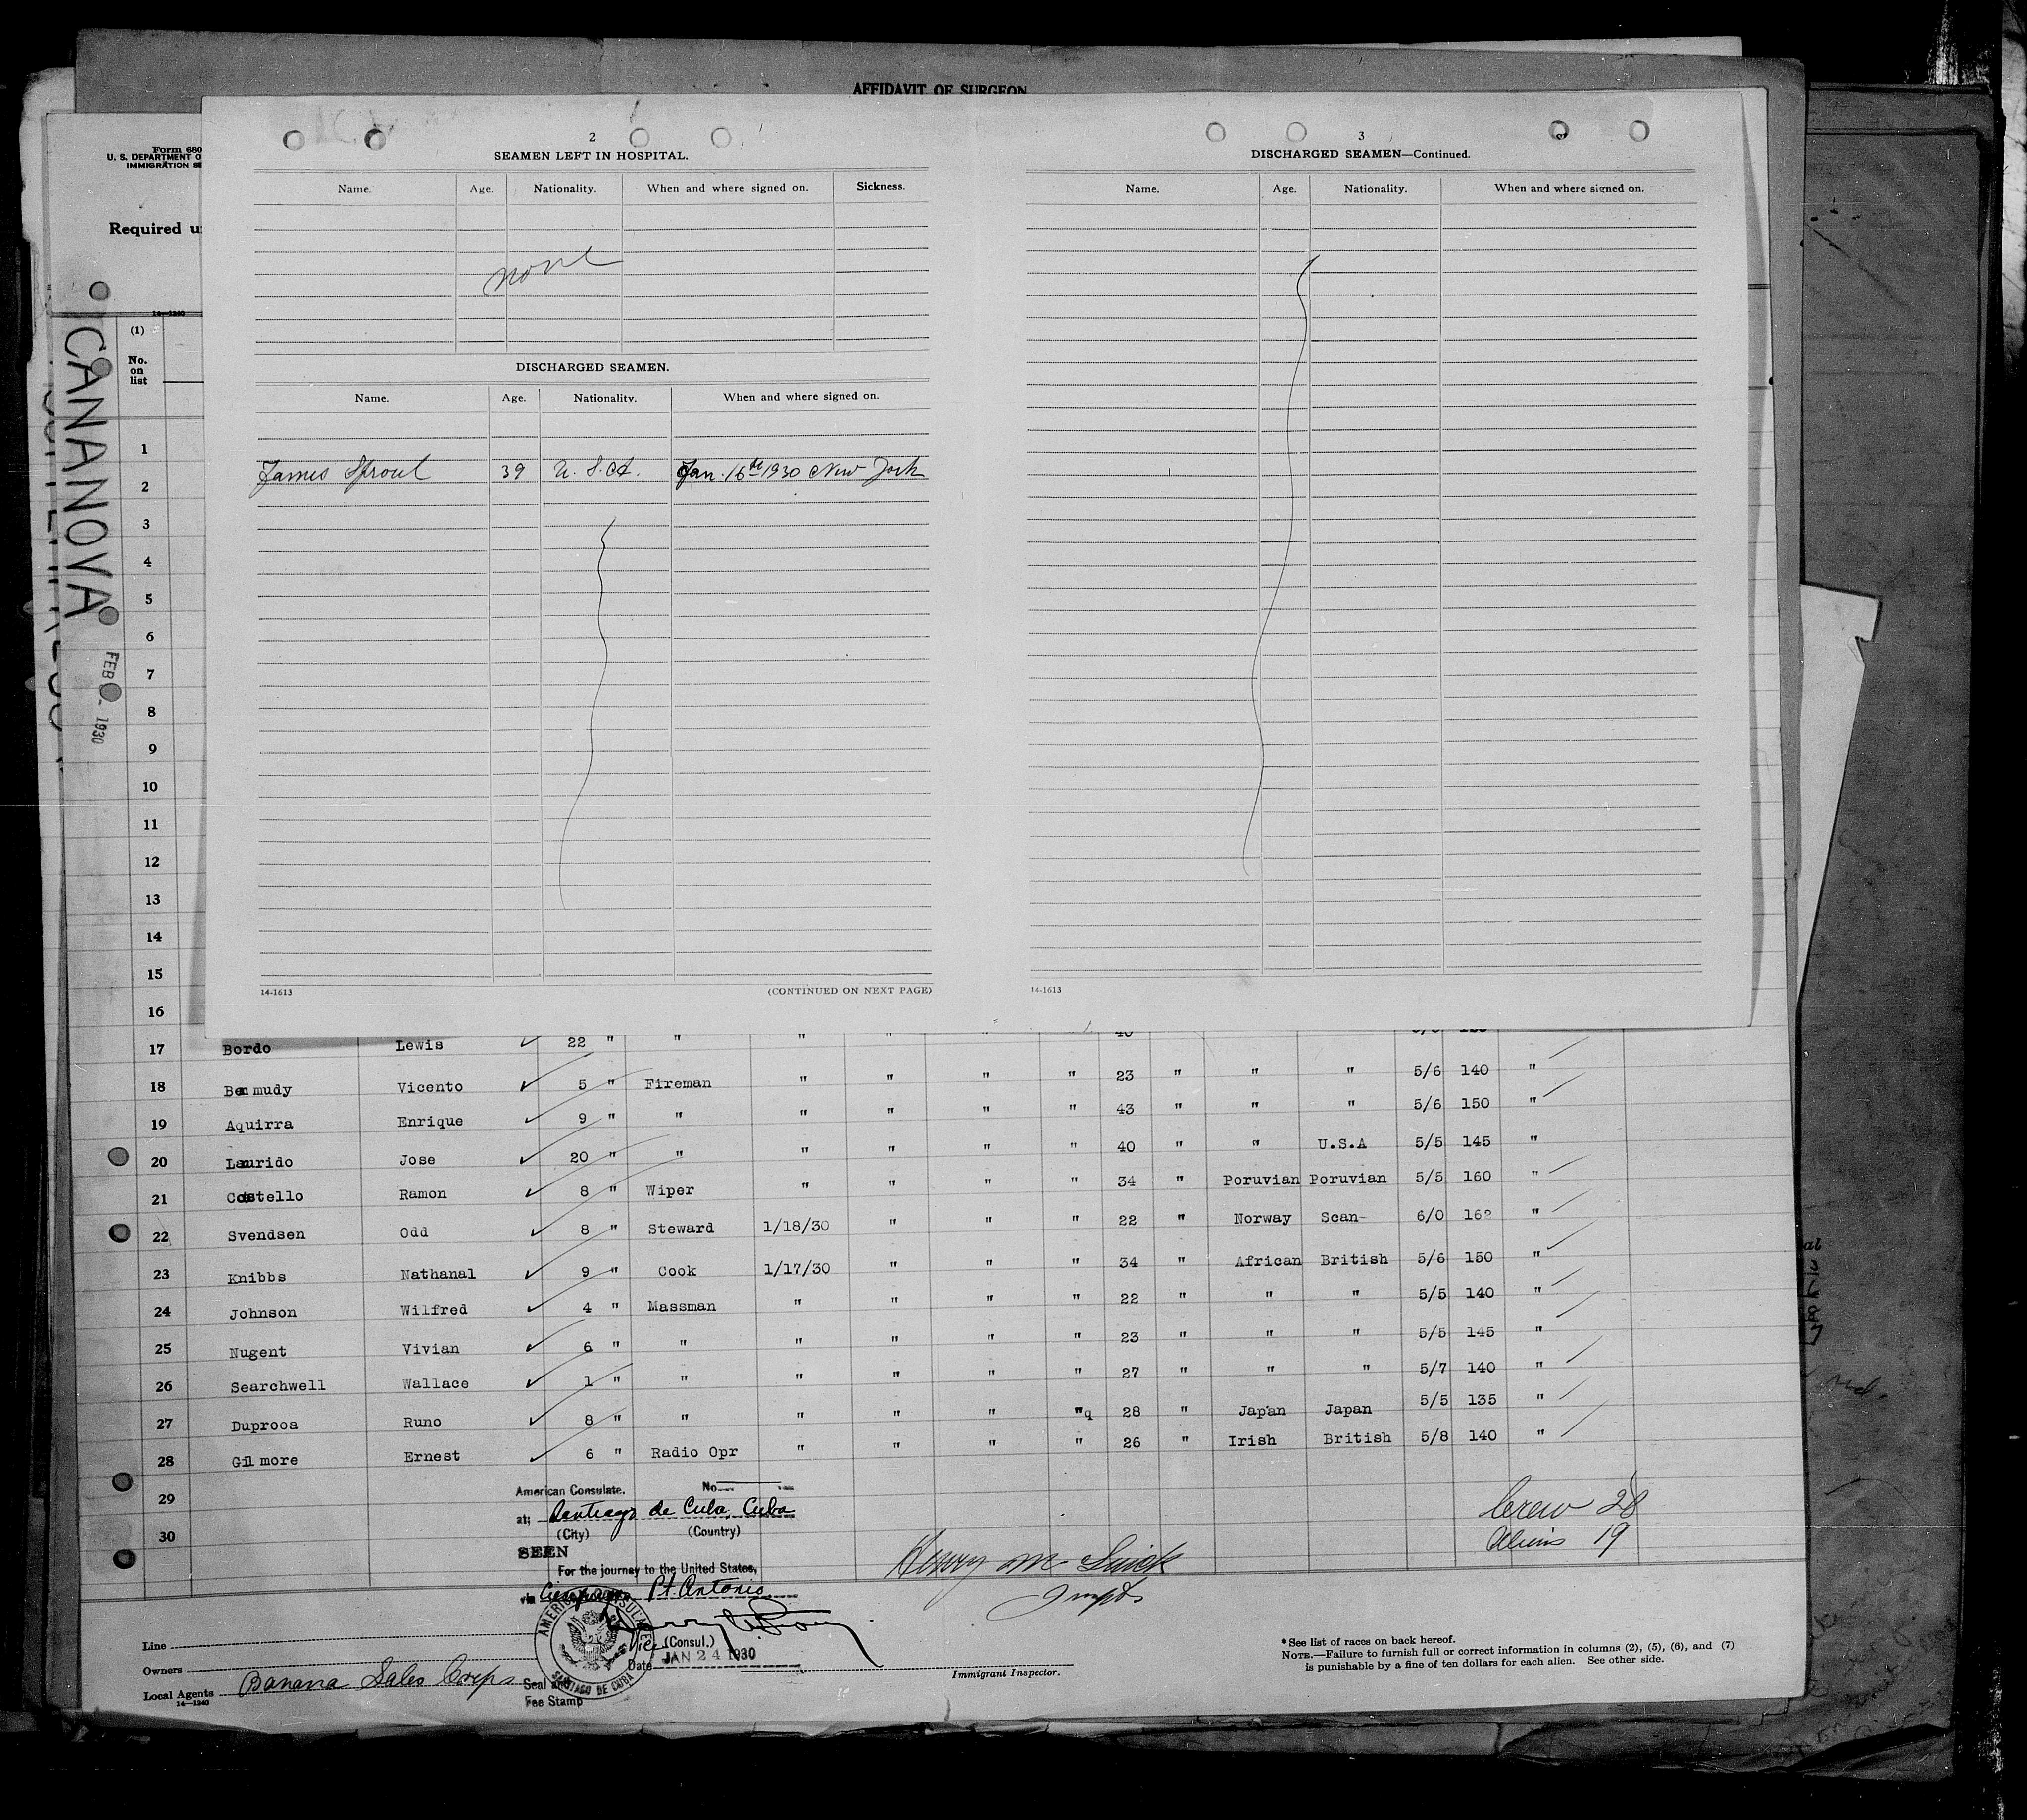 AFFIDAVIT OF SURGEON
Form 680
U. S. DEPARTMENT O
IMMIGRATION SE
Required u
14—1240
(1)
No.
on
list
CANANOVA
FEB - 1930
2
SEAMEN LEFT IN HOSPITAL.
Name. Age. Nationality. When and where signed on. Sickness.
none
DISCHARGED SEAMEN.
Name. Age. Nationality. When and where signed on.
James Sproul 39 U. S. A. Jan. 16th 1930 New York
14-1613 (CONTINUED ON NEXT PAGE)
3
DISCHARGED SEAMEN—Continued.
Name. Age. Nationality. When and where signed on.
14-1613
1
2
3
4
5
6
7
8
9
10
11
12
13
14
15
16
17 Bordo Lewis 22 " " " " " "
18 Bermudy Vicento 5 " Fireman " " " " 23 " " " 5/6 140 "
19 Aquirra Enrique 9 " " " " " " 43 " " " 5/6 150 "
20 Laurido Jose 20 " " " " " " 40 " " U.S.A 5/5 145 "
21 Costello Ramon 8 " Wiper " " " " 34 " Poruvian Poruvian 5/5 160 "
22 Svendsen Odd 8 " Steward 1/18/30 " " " 22 " Norway Scan- 6/0 162 "
23 Knibbs Nathanal 9 " Cook 1/17/30 " " " 34 " African British 5/6 150 "
24 Johnson Wilfred 4 " Massman " " " " 22 " " " 5/5 140 "
25 Nugent Vivian 6 " " " " " " 23 " " " 5/5 145 "
26 Searchwell Wallace 1 " " " " " " 27 " " " 5/7 140 "
27 Duprooa Runo 8 " " " " " "q 28 " Japan Japan 5/5 135 "
28 Gilmore Ernest 6 " Radio Opr " " " " 26 " Irish British 5/8 140 "
29
30
American Consulate. No
at; Santiago de Cuba, Cuba
(City) (Country)
SEEN
For the journey to the United States,
via Pt. Antonio
AMERICAN CONSULATE
SANTIAGO DE CUBA
Vice (Consul.)
Date JAN 24 1930
Seal and
Fee Stamp
Crew 28
Aliens 19
Henry M
Impt
Immigrant Inspector.
Line
Owners
Local Agents Banana Sales Corp
14—1240
* See list of races on back hereof.
NOTE.—Failure to furnish full or correct information in columns (2), (5), (6), and (7)
is punishable by a fine of ten dollars for each alien. See other side.